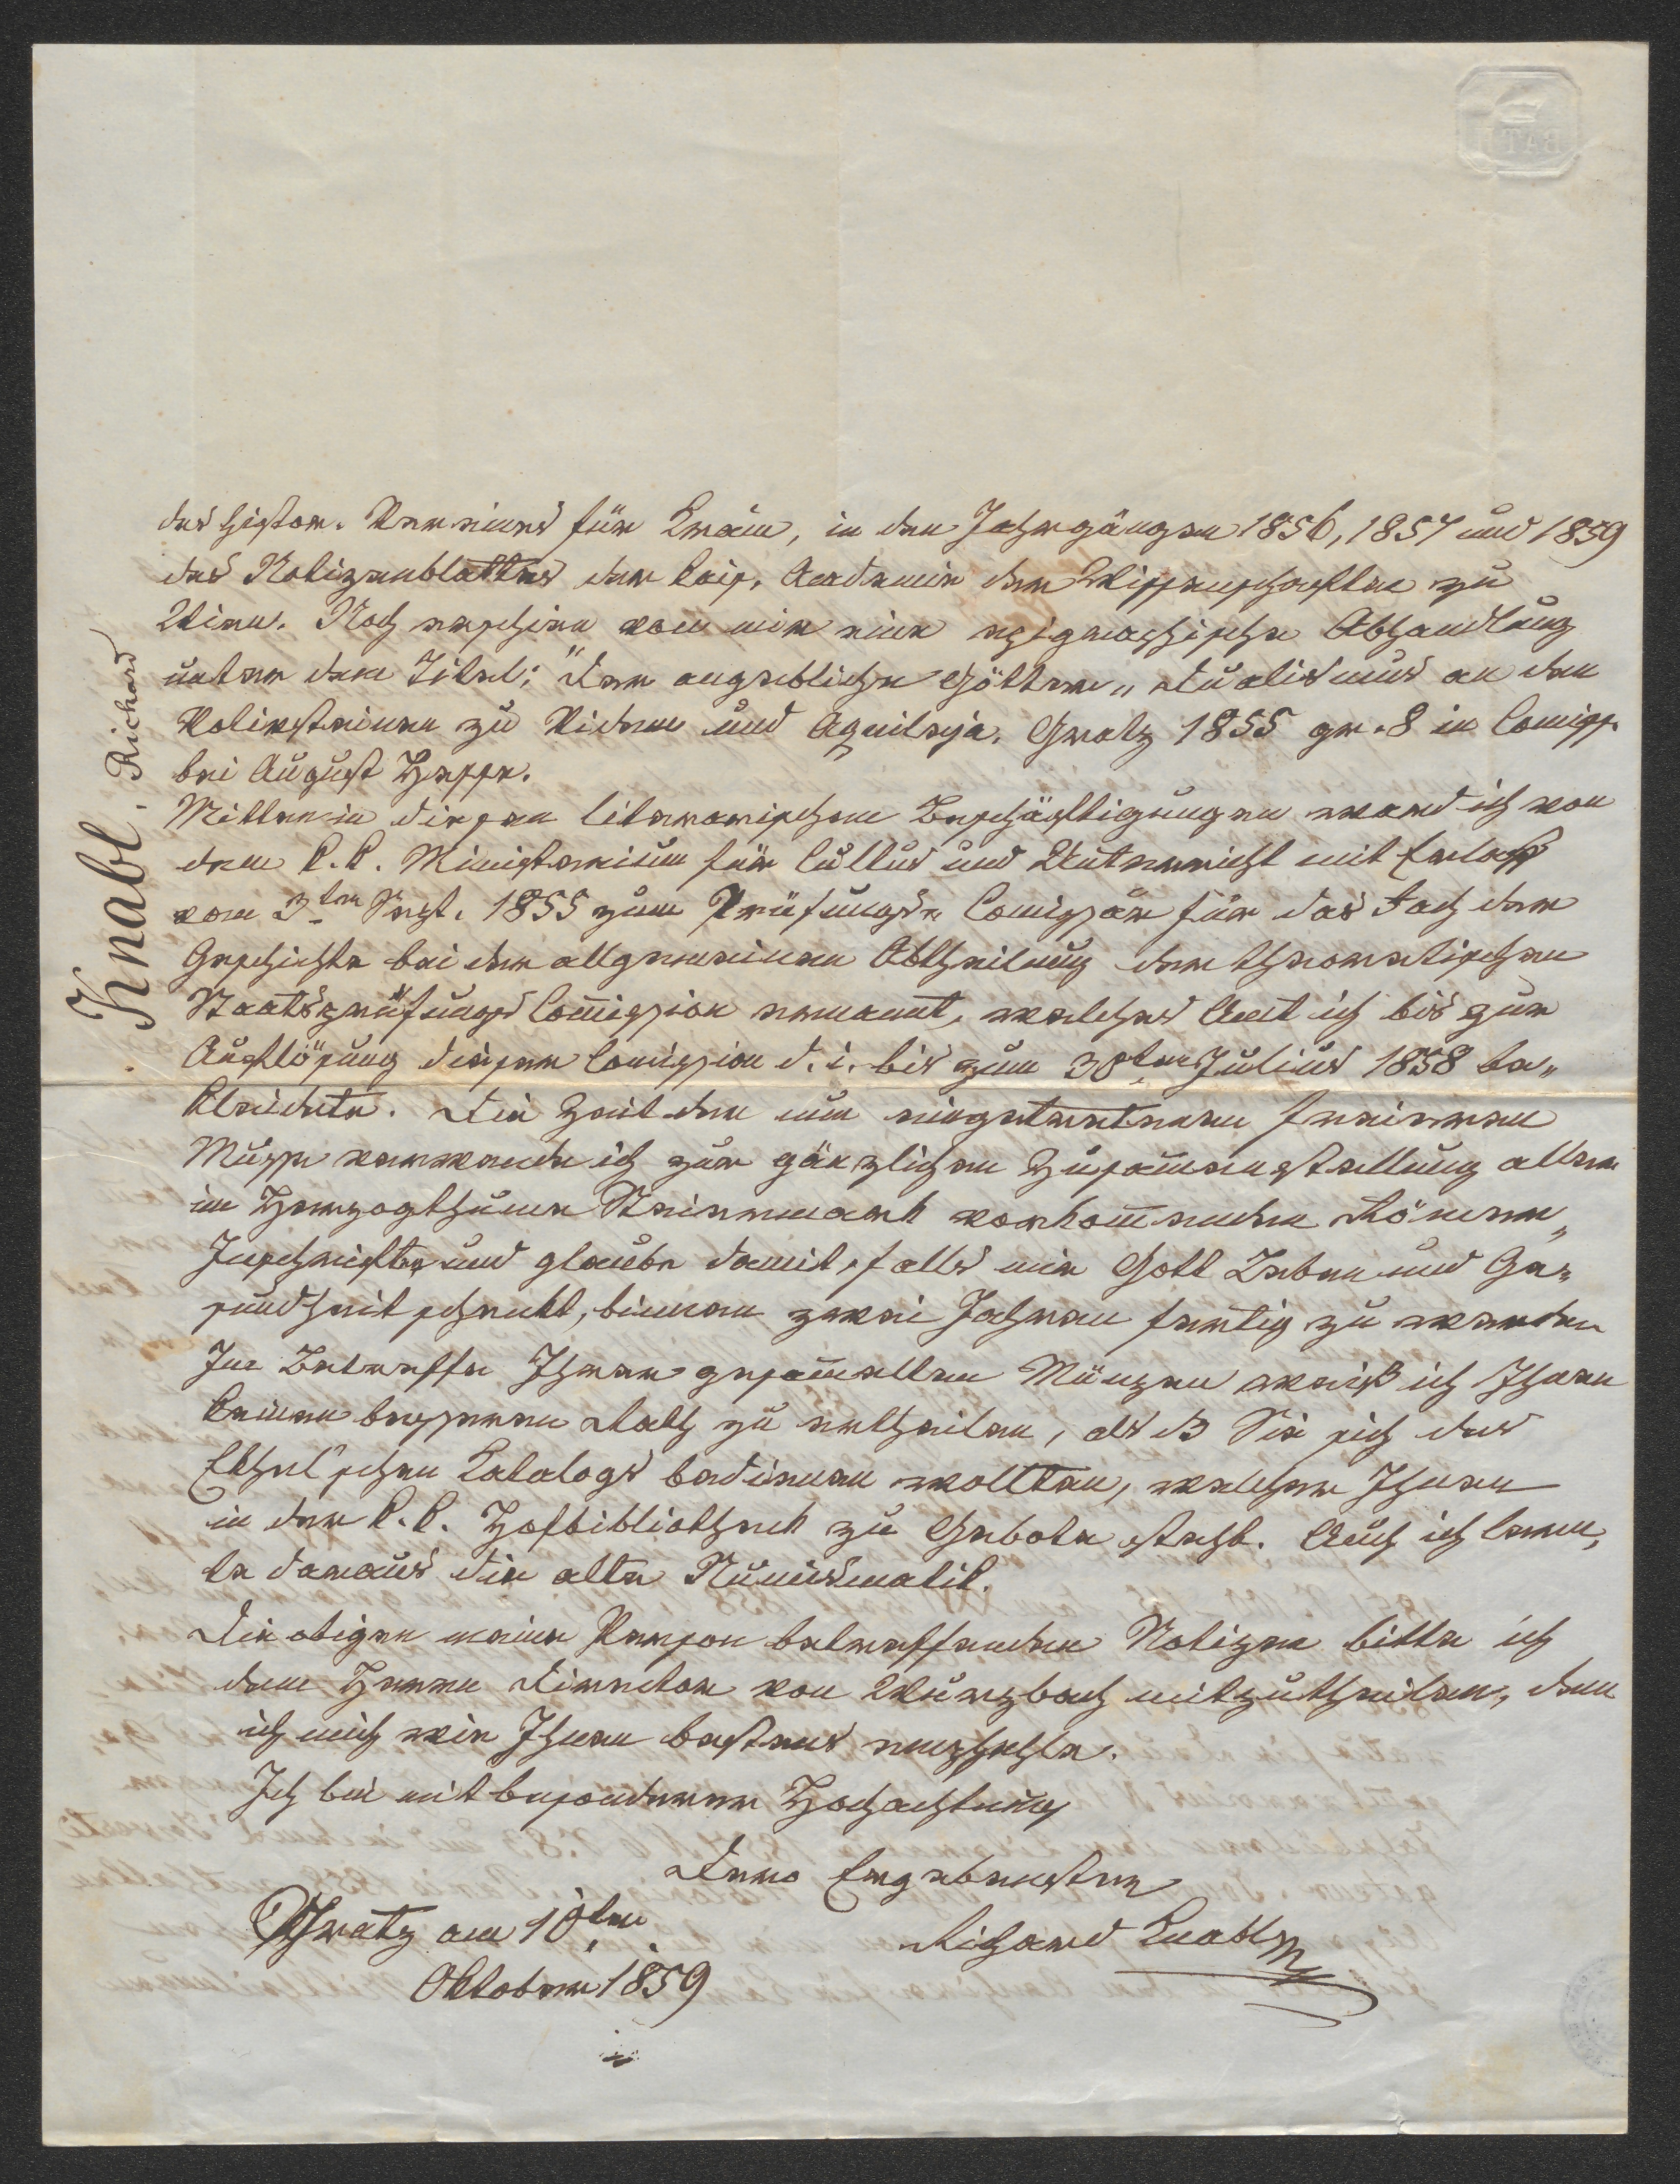 des histor. Vereines für Krain, in den Jahrgängen 1856, 1857 und 1859
des Notizenblattes der kais. Academie der Wissenschaften zu
Wien. Noch erschien von mir eine epigraphische Abhandlung
unter dem Titel: "Der angebliche Götter„ Dualismus an den
Votivsteinen zu Videm und Aquileja, Gratz 1855 gr. 8 in Comiss.
bei August Hesse.
Mitten in diesen literarischen Beschäftigungen ward ich von
dem k. k. Ministerium für Cultus und Unterricht mit Erlaß
vom 3ten Sept. 1855 zum Prüfungs„ Comissär für das Fach der
Geschichte bei der allgemeinen Abtheilung der theoretischen
Staatsprüfungs Com̅ission ernannt, welches Amt ich bis zur
Auflösung dieser Comission d. i. bis zum 30ten Julius 1858 be„
kleidete. Die Zeit der nun eingetretenen freieren
Musse verwende ich zur gänzlichen Zusam̅enstellung aller
im Herzogthume Steiermark vorkom̅enden Römer„
Inschriften und glaube damit, falls mir Gott Leben und Ge„
sundheit schenkt, binnen zwei Jahren fertig zu werden
Im Betreffe Ihrer gesam̅elten Münzen weiß ich Ihnen
keinen besseren Rath zu ertheilen, als dß Sie sich des
Ekhel'schen Katalogs bedienen wollten, welcher Ihnen
in der k. k. Hofbibliothek zu Gebote steht. Auch ich lern„
te daraus die alte Numismatik.
Die obigen meine Person betreffenden Notizen bitte ich
dem Herrn Director von Wurzbach mitzutheilen, dem
ich mich wie Ihnen bestens empfehle.
Ich bin mit besonderer Hochachtung
Dero Ergebenster
Richard Knabl
Gratz am 10ten
Oktober 1859
Knabl, Richard
BATH